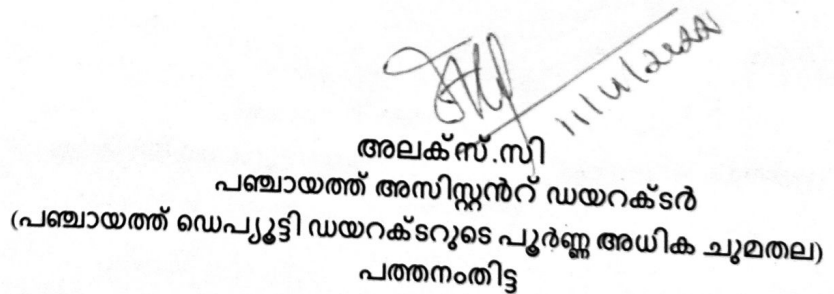 11/4/2022
അലക്സ്.സി
പഞ്ചായത്ത് അസിസ്റ്റൻറ് ഡയറക്ടർ
(പഞ്ചായത്ത് ഡെപ്യൂട്ടി ഡയറക്ടറുടെ പൂർണ്ണ അധിക ചുമതല)
പത്തനംതിട്ട